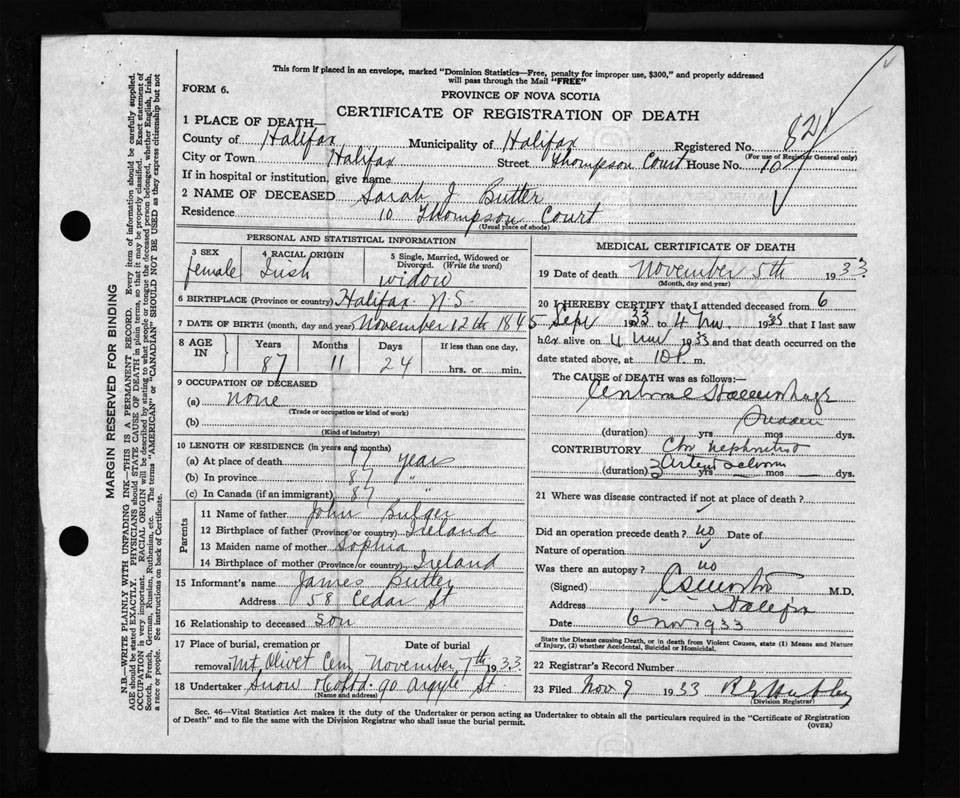 This form if placed in an envelope, marked "Dominion Statistics—Free, penalty for improper use, $300," and properly addressed
will pass through the Mail "FREE"
FORM 6.
PROVINCE OF NOVA SCOTIA
CERTIFICATE OF REGISTRATION OF DEATH
1 PLACE OF DEATH—
County of Halifax Municipality of Halifax Registered No. 821
(For use of Registrar General only)
City or Town Halifax Street Thompson Court House No. 10
If in hospital or institution, give name
2 NAME OF DECEASED Sarah J Butler
Residence 10 Thompson Court
(Usual place of abode)
PERSONAL AND STATISTICAL INFORMATION
3 SEX 4 RACIAL ORIGIN 5 Single, Married, Widowed or Divorced. (Write the word)
female Irish widow
6 BIRTHPLACE (Province or country) Halifax N.S.
7 DATE OF BIRTH (month, day and year) November 12th 1845
8 AGE IN Years Months Days If less than one day,
87 11 24 hrs. or min.
9 OCCUPATION OF DECEASED
(a) none
(Trade or occupation or kind of work)
(b)
(Kind of industry)
10 LENGTH OF RESIDENCE (in years and months)
(a) At place of death years
(b) In province 87 "
(c) In Canada (if an immigrant) 87 "
Parents
11 Name of father John Bulger
12 Birthplace of father (Province or country) Ireland
13 Maiden name of mother Sophia
14 Birthplace of mother (Province or country) Ireland
15 Informant's name James Butler
Address 58 Cedar St
16 Relationship to deceased Son
17 Place of burial, cremation or
removal Mt Olivet Cem November 7th 1933
18 Undertaker Snow & Co Ltd. 90 Argyle St
(Name and address)
MEDICAL CERTIFICATE OF DEATH
19 Date of death November 5th 1933
(Month, day and year)
20 I HEREBY CERTIFY that I attended deceased from 6
Sept 1933 to 4 Nov. 1933 that I last saw
her alive on 4 Nov 1933 and that death occurred on the
date stated above, at 10 P. m.
The CAUSE of DEATH was as follows:—
Cerebral Haemorrhage
Sudden
(duration) yrs mos dys.
CONTRIBUTORY Chr nephritis
(duration) yrs mos dys.
21 Where was disease contracted if not at place of death?
Did an operation precede death? no Date of
Nature of operation
Was there an autopsy? no
(Signed) M.D.
Address Halifax
Date 6 Nov 1933
State the Disease causing Death, or in death from Violent Causes, state (1) Means and Nature
of Injury, (2) whether Accidental, Suicidal or Homicidal.
22 Registrar's Record Number
23 Filed Nov 9 1933
(Division Registrar)
Sec. 46—Vital Statistics Act makes it the duty of the Undertaker or person acting as Undertaker to obtain all the particulars required in the "Certificate of Registration
of Death" and to file the same with the Division Registrar who shall issue the burial permit.
(OVER)
MARGIN RESERVED FOR BINDING
N.B.—WRITE PLAINLY WITH UNFADING INK—THIS IS A PERMANENT RECORD. Every item of information should be carefully supplied.
AGE should be stated EXACTLY. PHYSICIANS should STATE CAUSE OF DEATH in plain terms, so that it may be properly classified. Exact statement of
OCCUPATION is very important. RACIAL ORIGIN will be described by stating to what people or tongue the deceased person belonged, whether English, Irish,
Scotch, French, German, Russian, Ruthenian, etc. The terms "AMERICAN" or "CANADIAN" SHOULD NOT BE USED as they express citizenship but not
a race or people. See instructions on back of Certificate.